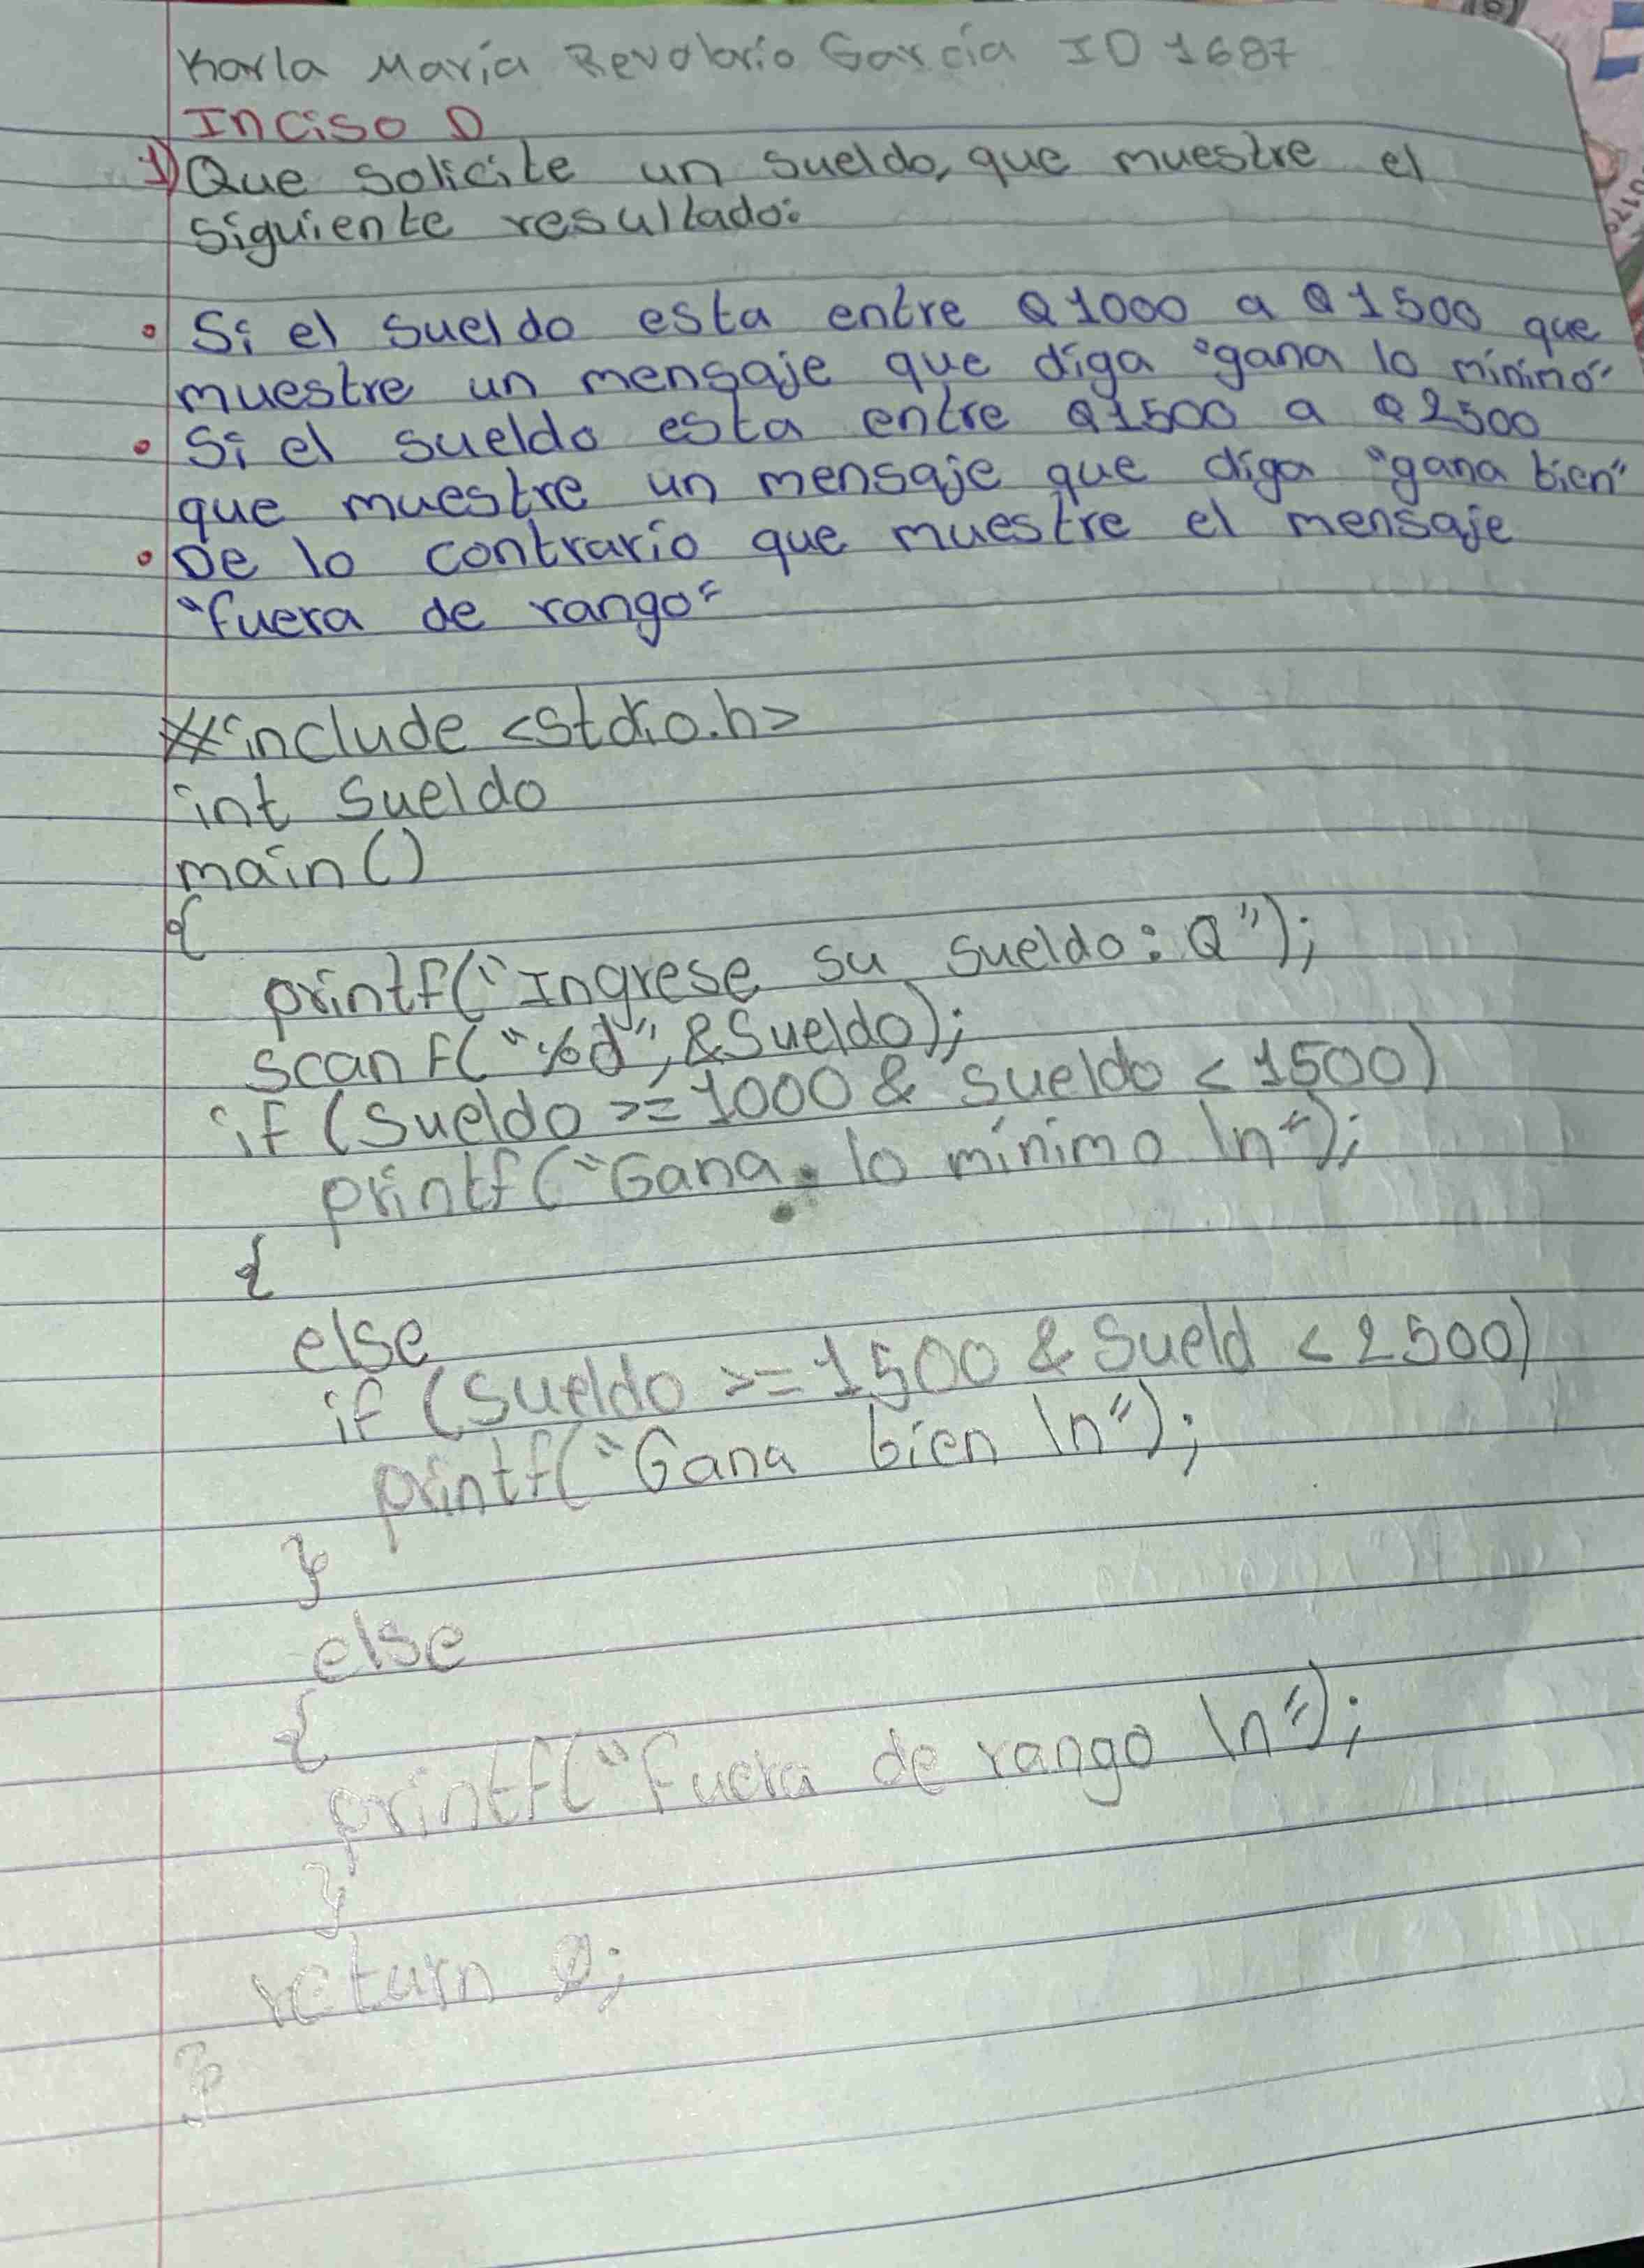 Karla María Revolorio García ID 1687
Inciso D
1) Que solicite un sueldo, que muestre el
siguiente resultado:
• Si el sueldo esta entre Q1000 a Q1500 que
muestre un mensaje que diga "gana lo mínimo"
• Si el sueldo esta entre Q1500 a Q2500
que muestre un mensaje que diga "gana bien"
• De lo contrario que muestre el mensaje
"fuera de rango"
#include <stdio.h>
int Sueldo
main()
{
printf("Ingrese su Sueldo: Q");
scanf("%d",&Sueldo);
if (Sueldo >=1000 & sueldo < 1500)
printf("Gana lo mínimo \n");
{
else
if (Sueldo >=1500 & Sueld < 2500)
printf("Gana bien \n");
}
else
{
printf("Fuera de rango \n");
}
return 0;
}